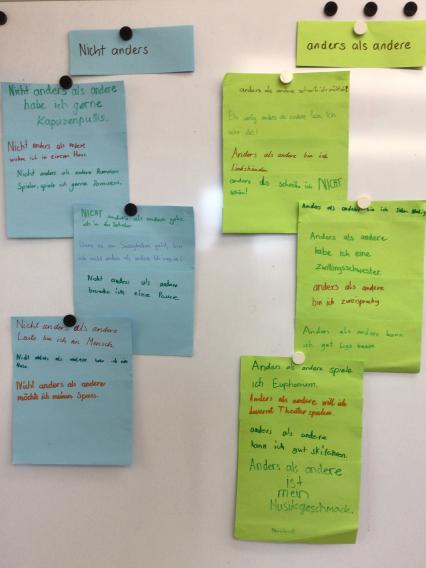 Nicht anders
anders als andere
Nicht anders als andere
habe ich gerne
Kapuzenpullis.
Nicht anders als andere
wohne ich in einem Haus.
Nicht anders als andere
spiele ich gerne
NICHT anders als andere gehe
ich in die Schule
Nicht anders als andere
brauche ich eine Pause
Nicht anders als andere
Leute bin ich ein Mensch.
Nicht anders als andere
Nicht anders als andere
möchte ich meinen Spass.
anders als andere
anders als andere bin ich
Anders als andere bin ich
Linkshänder
anders schreibe ich NICHT
schön!
Anders als andere bin ich
Anders als andere
habe ich eine
zwillingsschwester.
anders als andere
bin ich zweisprachig
Anders als andere kann
ich gut Lego bauen
Anders als andere spiele
ich Euphonium.
Anders als andere will ich
Theater spielen.
anders als andere
kann ich gut skifahren.
Anders als andere
ist
mein
Musikgeschmack.